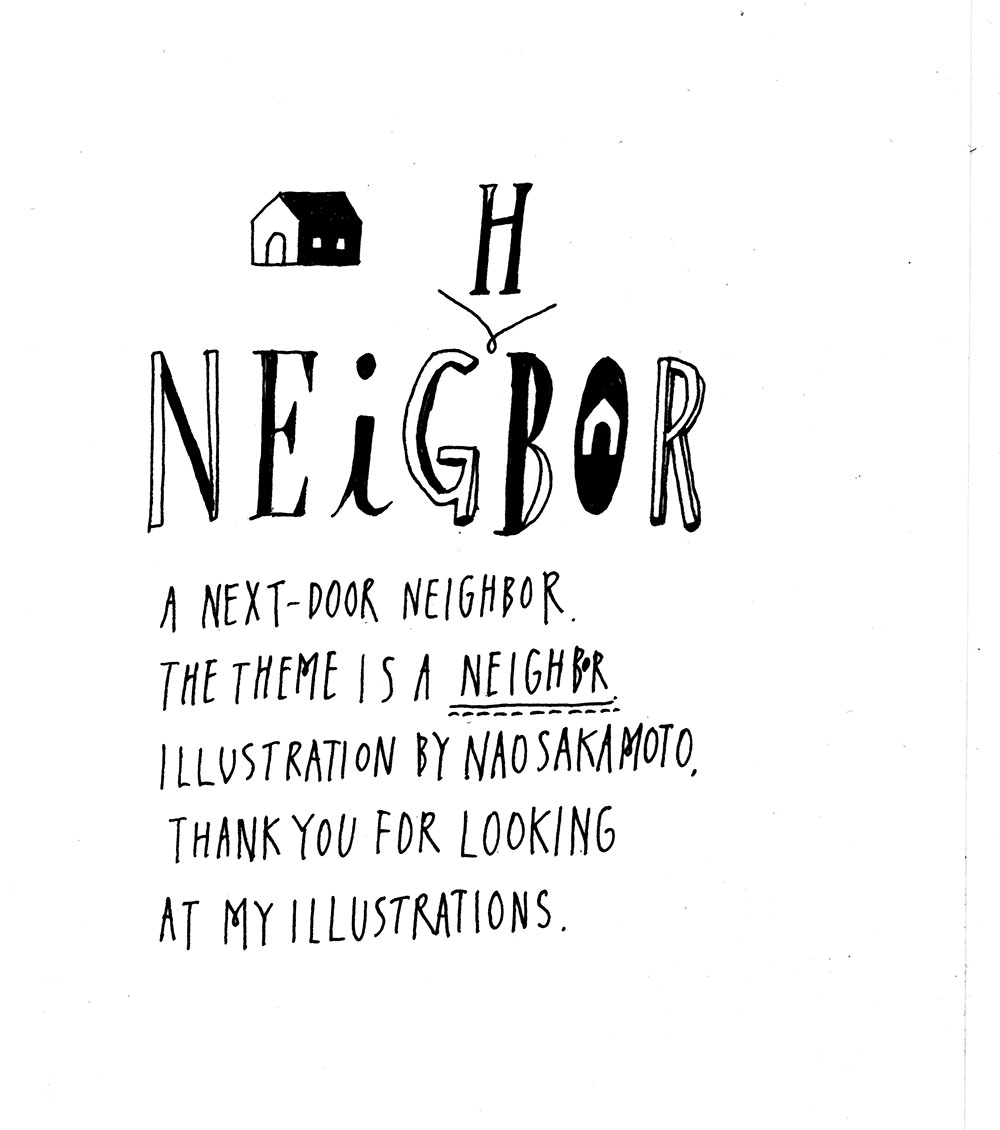 H
NEiGBOR
A NEXT-DOOR NEIGHBOR.
THE THEME IS A NEIGHBOR.
ILLUSTRATION BY NAO SAKAMOTO.
THANK YOU FOR LOOKING
AT MY ILLUSTRATIONS.